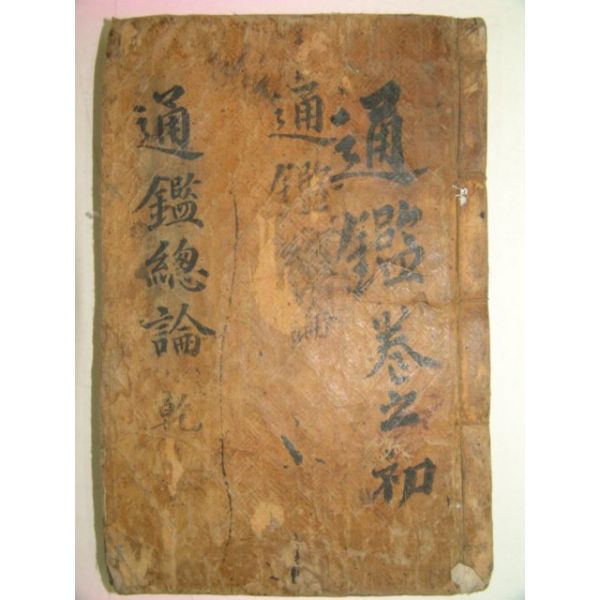 通鑑卷之初
通鑑
通鑑總論 乾